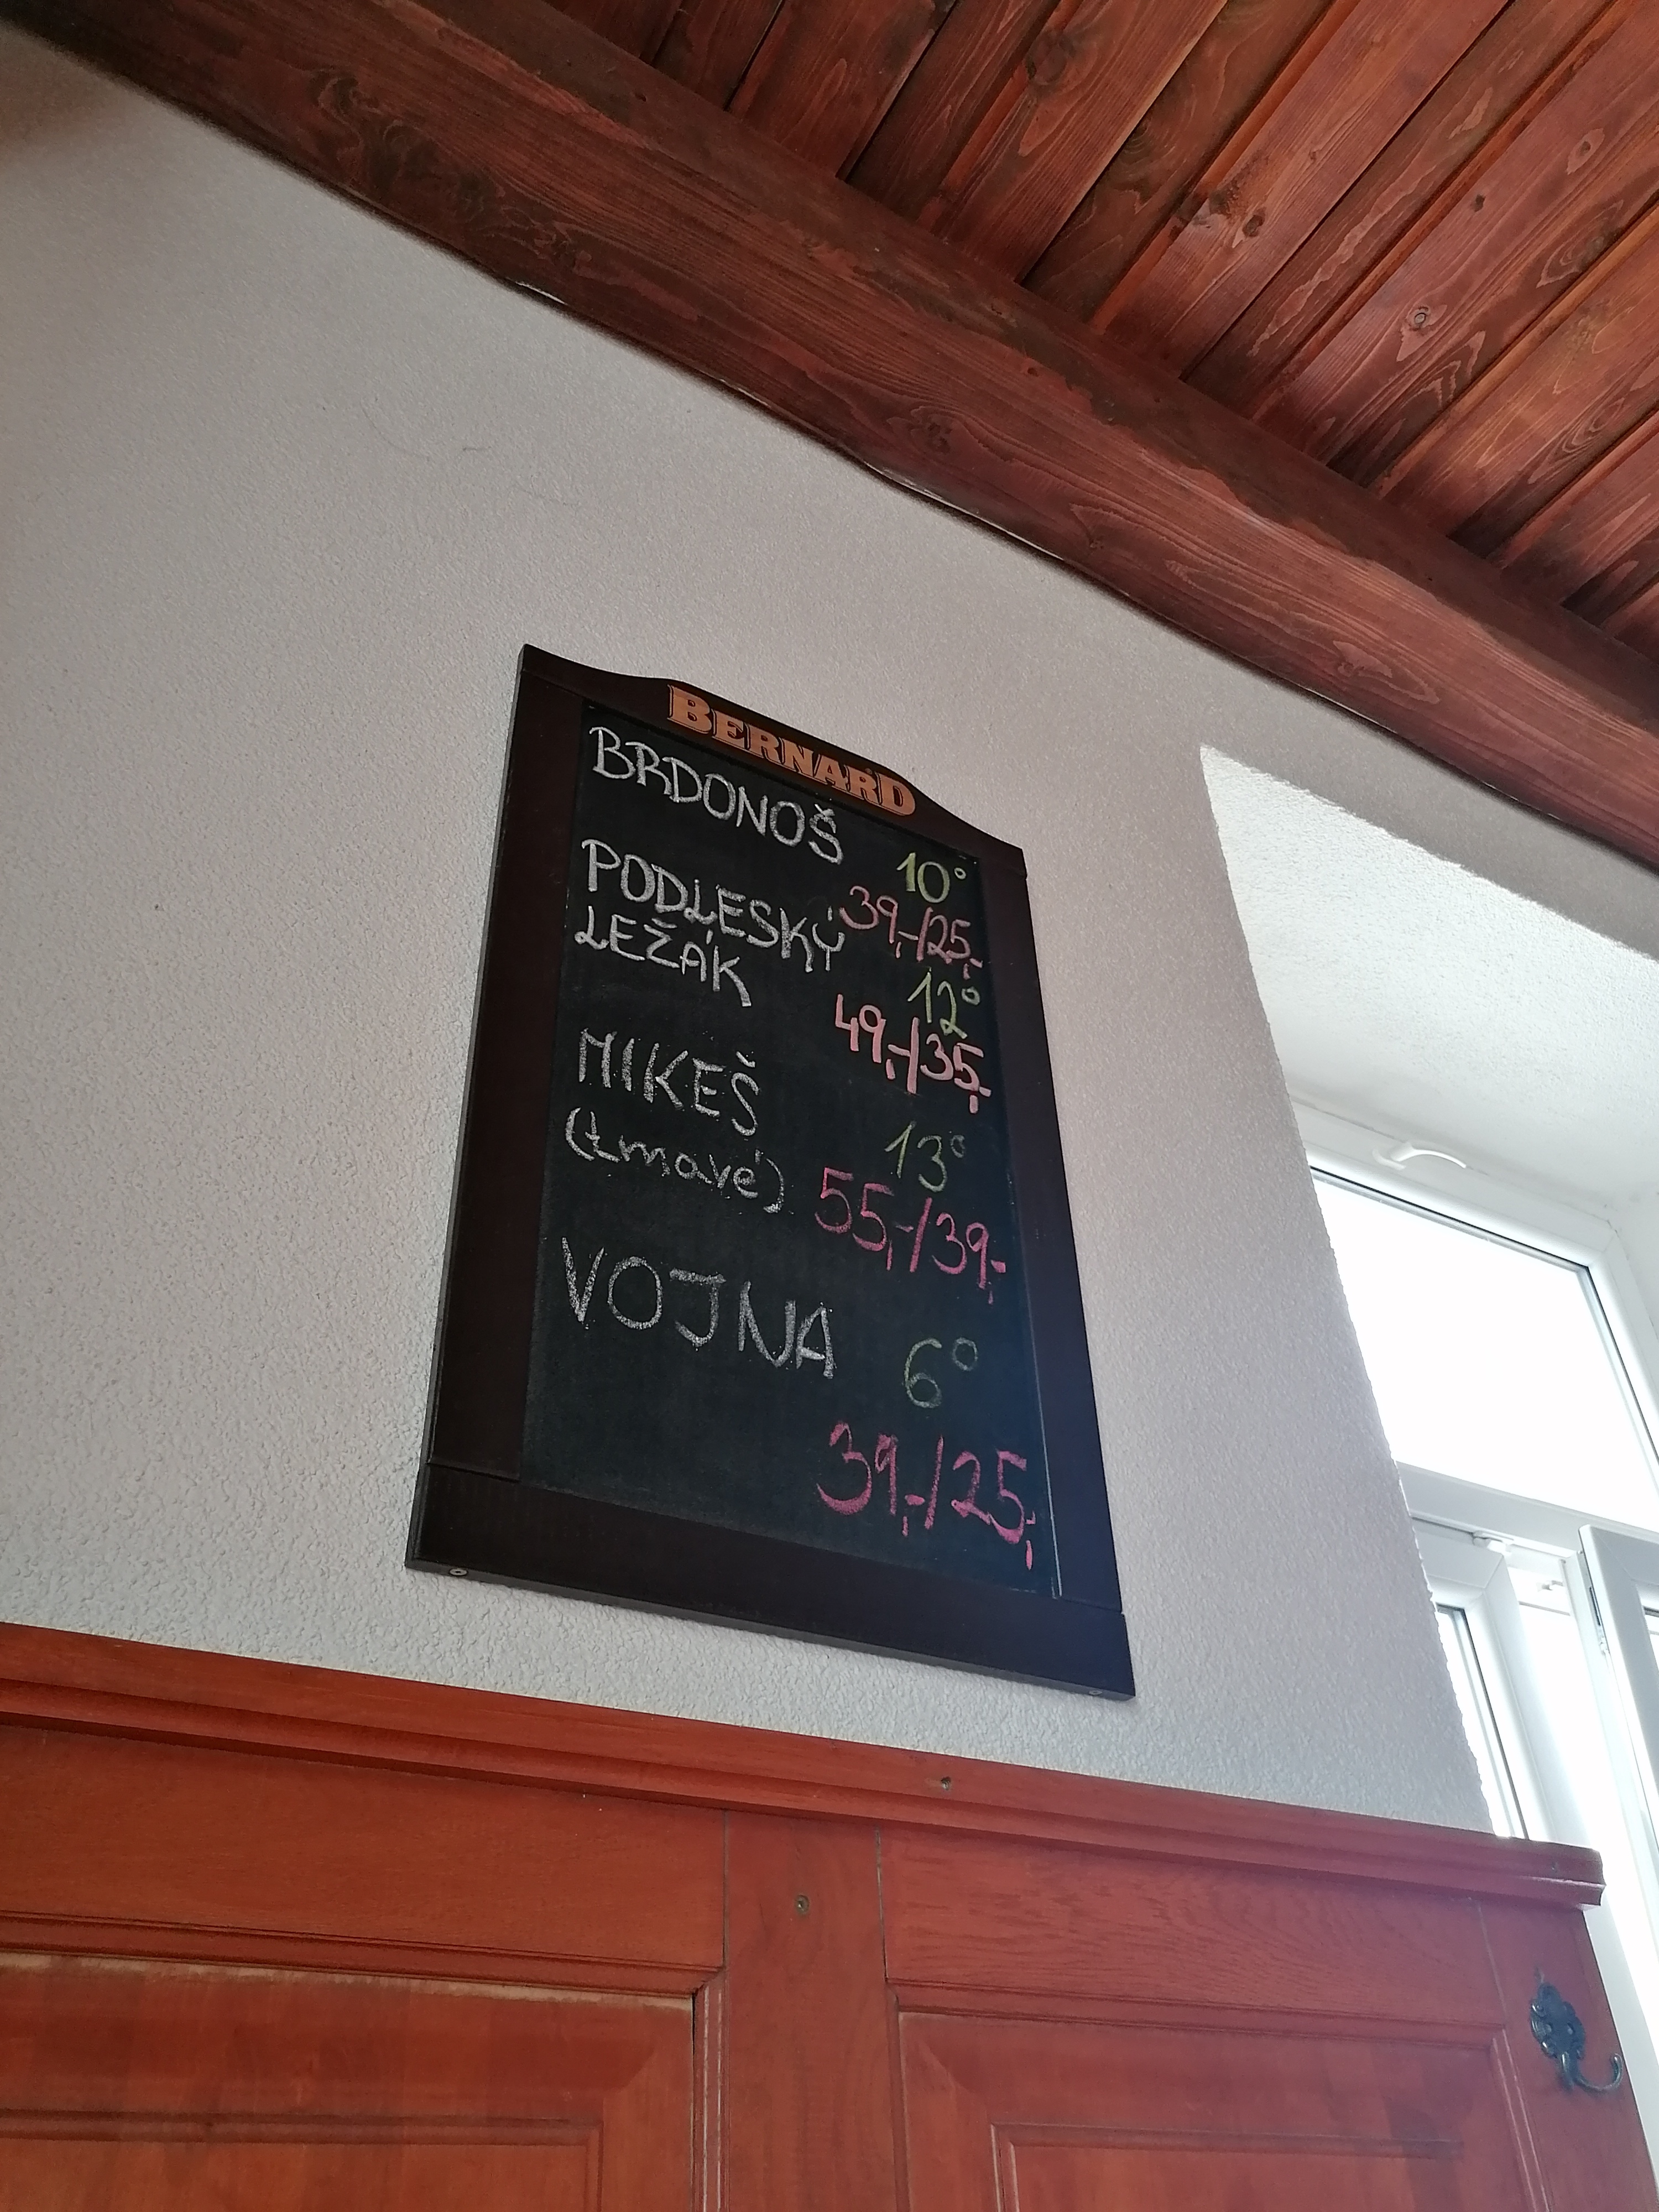 BERNARD
BRDONOŠ
10°
39,-/25,-
PODLESKÝ
LEŽÁK
12°
49,-/35,-
MIKEŠ
13°
(tmavé)
55,-/39,-
VOJNA
6°
39,-/25,-